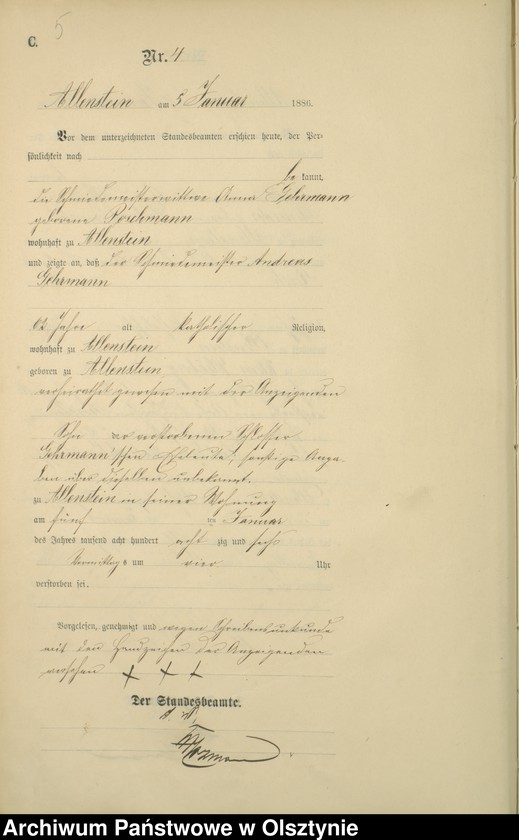 C. 5
Nr. 4
Allenstein am 5 Januar 1886.
Vor dem unterzeichneten Standesbeamten erschien heute, der Per-
sönlichkeit nach
be kannt,
die Schmiedemeisterwittwe Anna Gehrmann
geborene
wohnhaft zu Allenstein
und zeigte an, daß der Schmiedemeister Andreas
Gehrmann
62 Jahre alt katholischer Religion,
wohnhaft zu Allenstein
geboren zu Allenstein
verheirathet gewesen mit der Anzeigenden
Sohn der verstorbenen Schlosser
Gehrmann'schen Eheleute, sonstige Anga-
ben über dieselben unbekannt.
zu Allenstein in seiner Wohnung
am fünf ten Januar
des Jahres tausend acht hundert acht zig und sechs
Vormittags um vier Uhr
verstorben sei.
Vorgelesen, genehmigt und wegen Schreibensunkunde
mit den Handzeichen der Anzeigenden
versehen + + +
Der Standesbeamte.
Archiwum Państwowe w Olsztynie